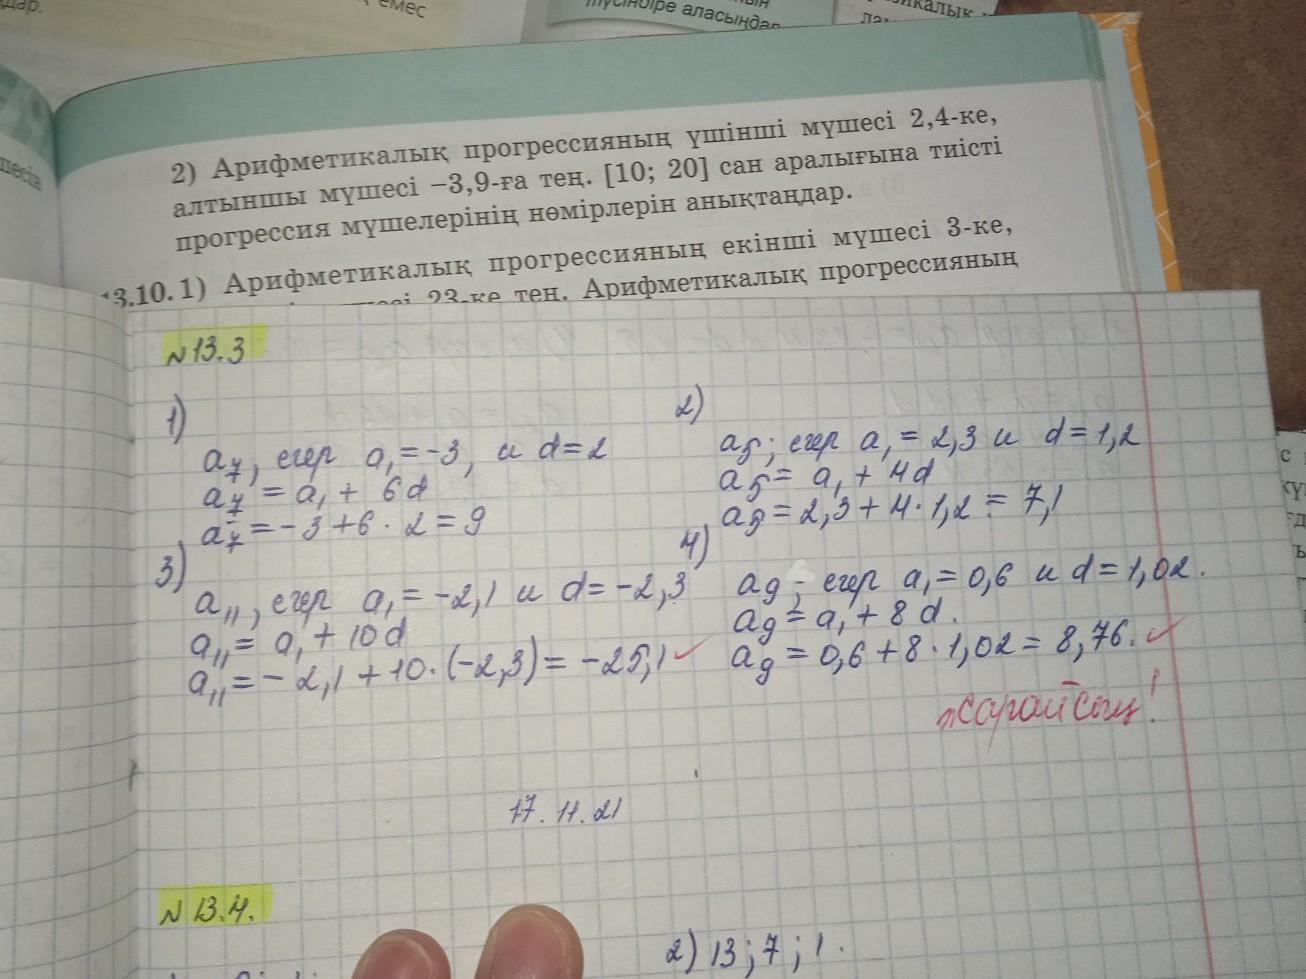 дар.
емес
түсіндіре аласыңдар
2) Арифметикалық прогрессияның үшінші мүшесі 2,4-ке,
алтыншы мүшесі −3,9-ға тең. [10; 20] сан аралығына тиісті
прогрессия мүшелерінің нөмірлерін анықтаңдар.
13.10. 1) Арифметикалық прогрессияның екінші мүшесі 3-ке,
23-ке тең. Арифметикалық прогрессияның
N 13.3
1)
a₇, егер a₁=-3, и d=2
a₇ = a₁ + 6d
a₇ = -3+6·2=9
2)
a₅; егер a₁=2,3 и d=1,2
a₅= a₁ + 4d
a₅=2,3+4·1,2=7,1
3)
a₁₁, егер a₁=-2,1 и d=-2,3
a₁₁= a₁ + 10d
a₁₁=-2,1+10·(-2,3)=-25,1
4)
a₉; егер a₁=0,6 и d=1,02.
a₉=a₁+8d.
a₉=0,6+8·1,02=8,76.
жарайсың!
17.11.21
N 13.4.
2) 13; 7; 1.